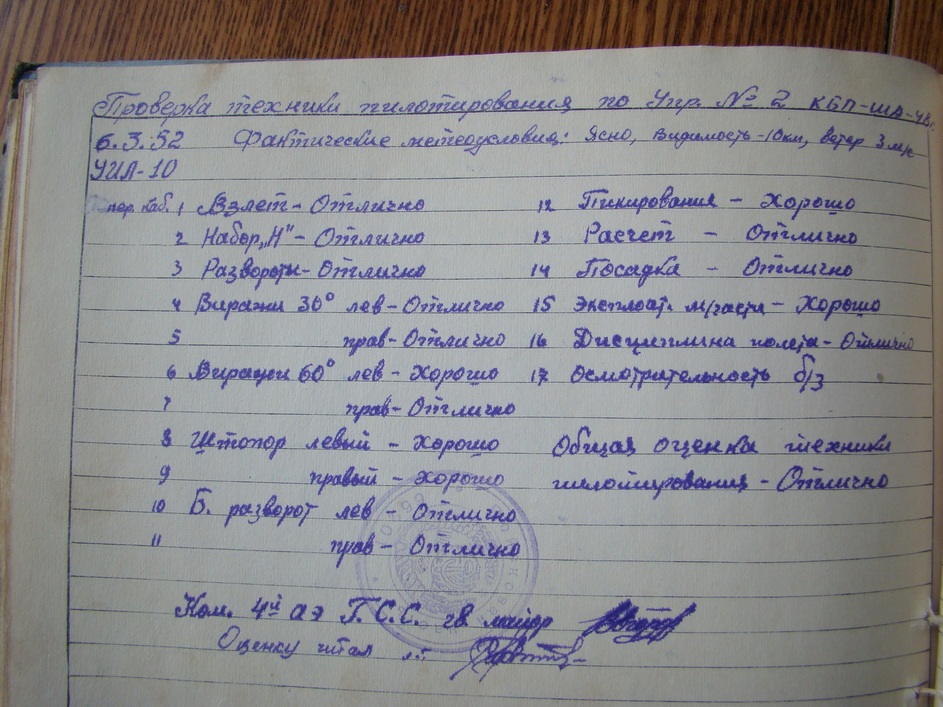 Проверка техники пилотирования по Упр. № 2 КБП-ША-48г.
6.3.52 Фактические метеоусловия: Ясно, видимость-10км, ветер 3м/с
УИЛ-10
пер. каб. 1 Взлет - Отлично
2 Набор „Н" - Отлично
3 Развороты - Отлично
4 Виражи 30° лев - Отлично
5 прав - Отлично
6 Виражи 60° лев - Хорошо
7 прав - Отлично
8 Штопор левый - Хорошо
9 правый - Хорошо
10 Б. разворот лев - Отлично
11 прав - Отлично
12 Пикирования - Хорошо
13 Расчет - Отлично
14 Посадка - Отлично
15 Эксплоат. м/части - Хорошо
16 Дисциплина полета - Отлично
17 Осмотрительность б/з
Общая оценка техники
пилотирования - Отлично
Ком. 4й аэ Г.С.С. гв. майор
Оценку читал